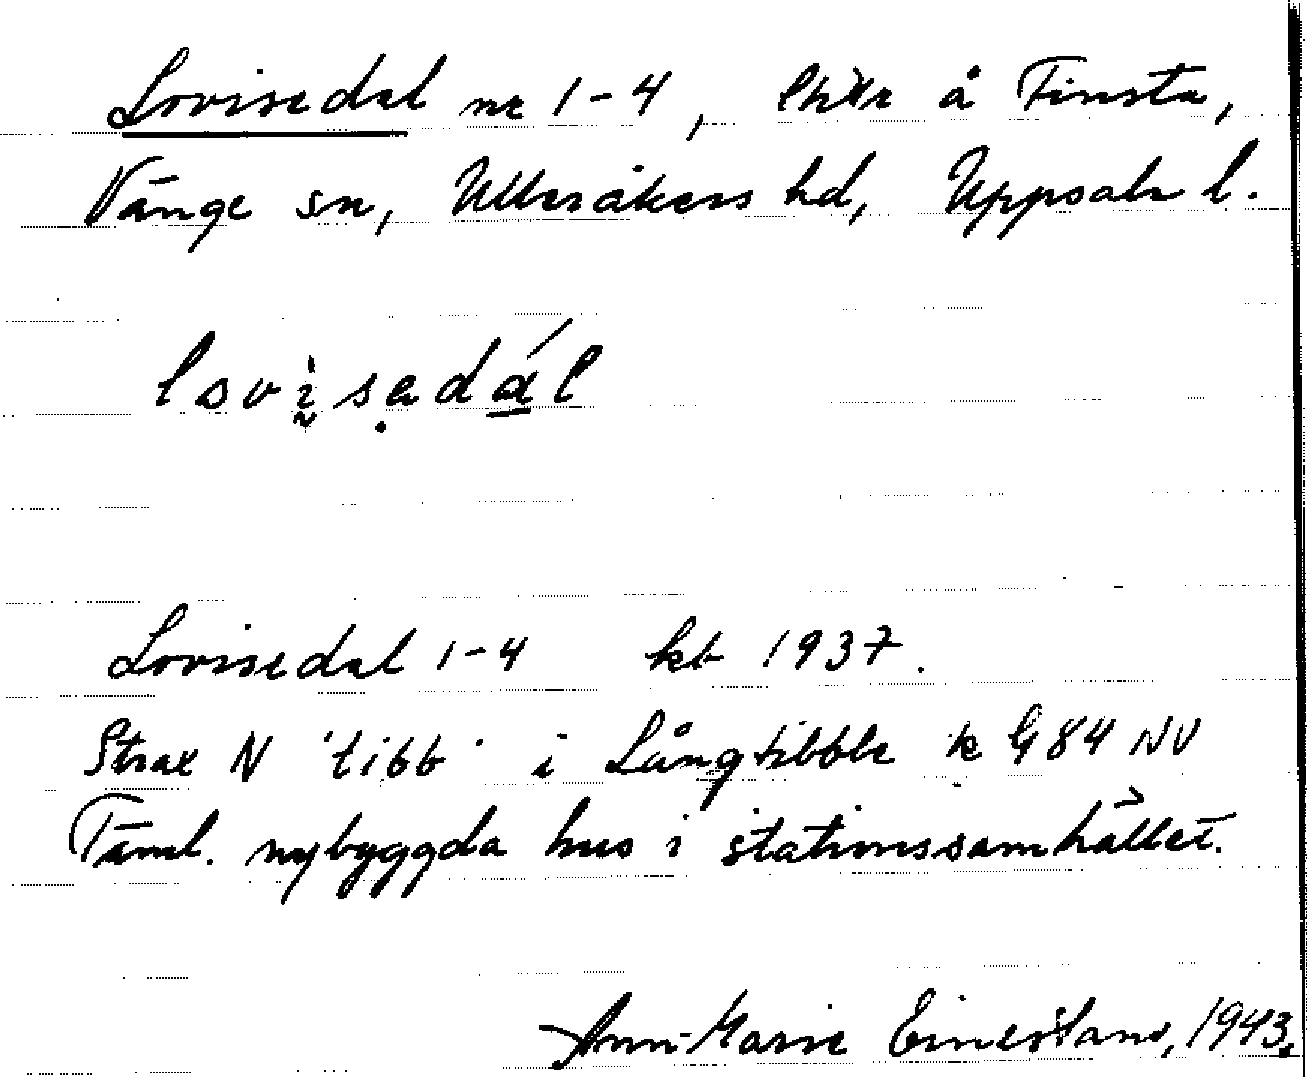 Lovisedal nr 1-4, lhtr å Finsta,
Vänge sn, Ulleråkers hd, Uppsala l.
lovisedál
Lovisedal 1-4 kb 1937.
Strax N 'tibb' i Långtibble k G84 NV
Täml. nybyggda hus i stationssamhället.
Ann-Marie 1943.